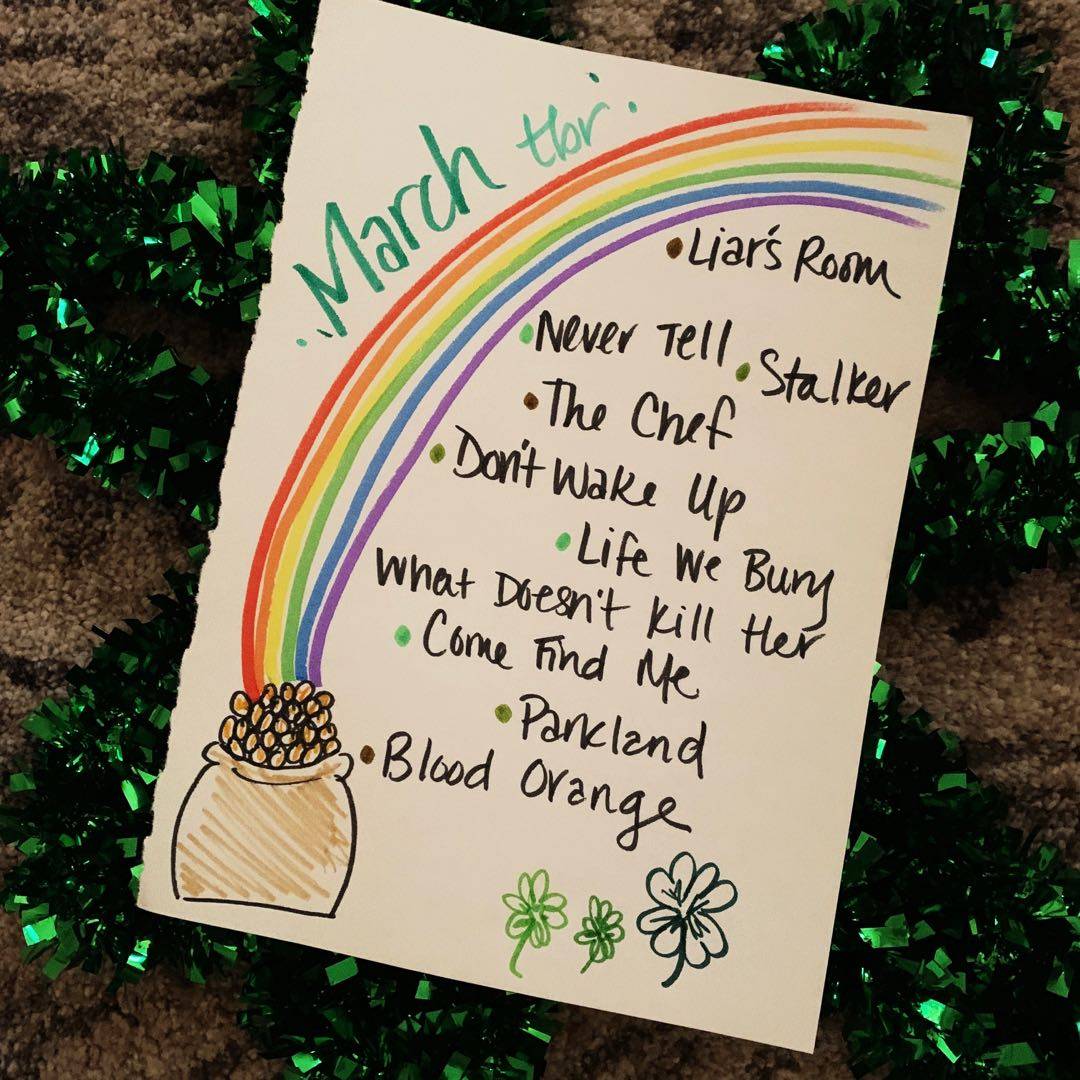 March tbr
• Liar's Room
• Never Tell
• Stalker
• The Chef
• Don't Wake Up
• Life We Bury
What Doesn't Kill Her
• Come Find Me
• Parkland
• Blood Orange